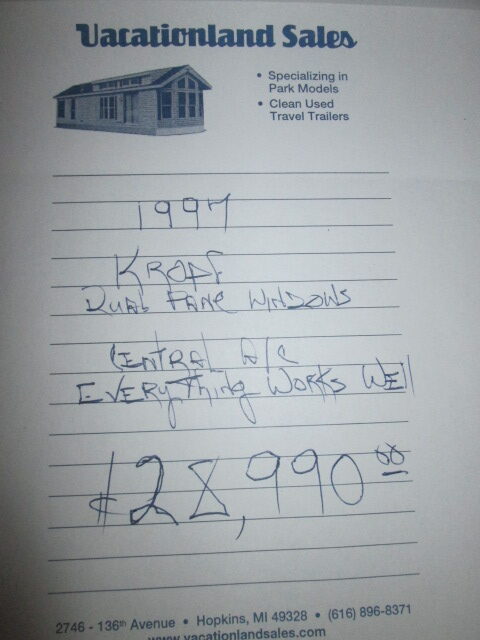 Vacationland Sales
• Specializing in
Park Models
• Clean Used
Travel Trailers
1997
KROPF
DUAL PANE WINDOWS
CENTRAL A/C
EVERYThing WORKS WEll
$28,990.00
2746 - 136th Avenue • Hopkins, MI 49328 • (616) 896-8371
www.vacationlandsales.com